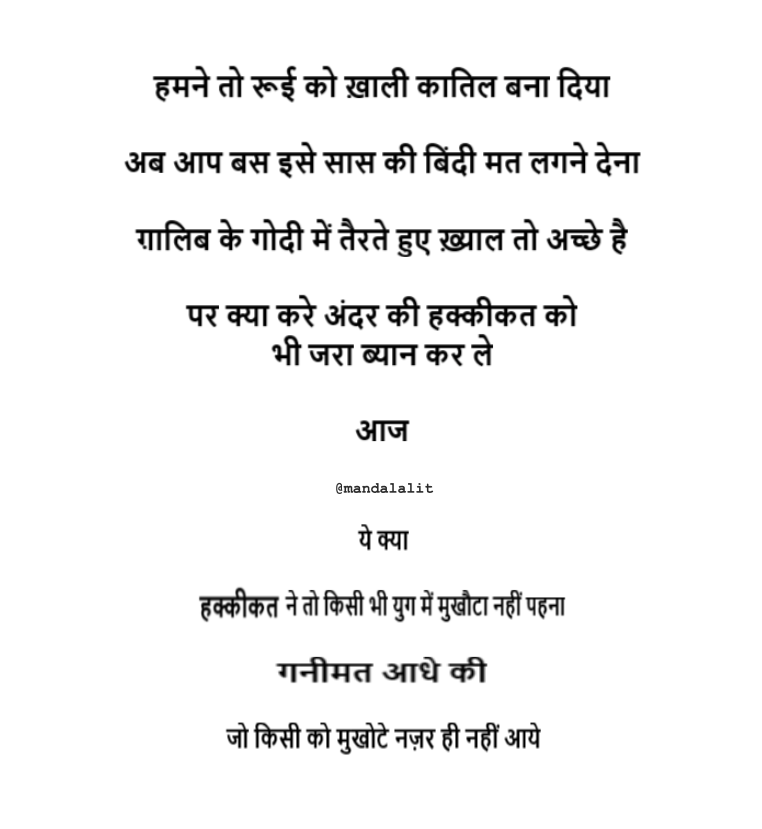 हमने तो रूई को ख़ाली कातिल बना दिया
अब आप बस इसे सास की बिंदी मत लगने देना
ग़ालिब के गोदी में तैरते हुए ख़्याल तो अच्छे है
पर क्या करे अंदर की हक्कीकत को
भी जरा ब्यान कर ले
आज
@mandalalit
ये क्या
हक्कीकत ने तो किसी भी युग में मुखौटा नहीं पहना
गनीमत आधे की
जो किसी को मुखोटे नज़र ही नहीं आये